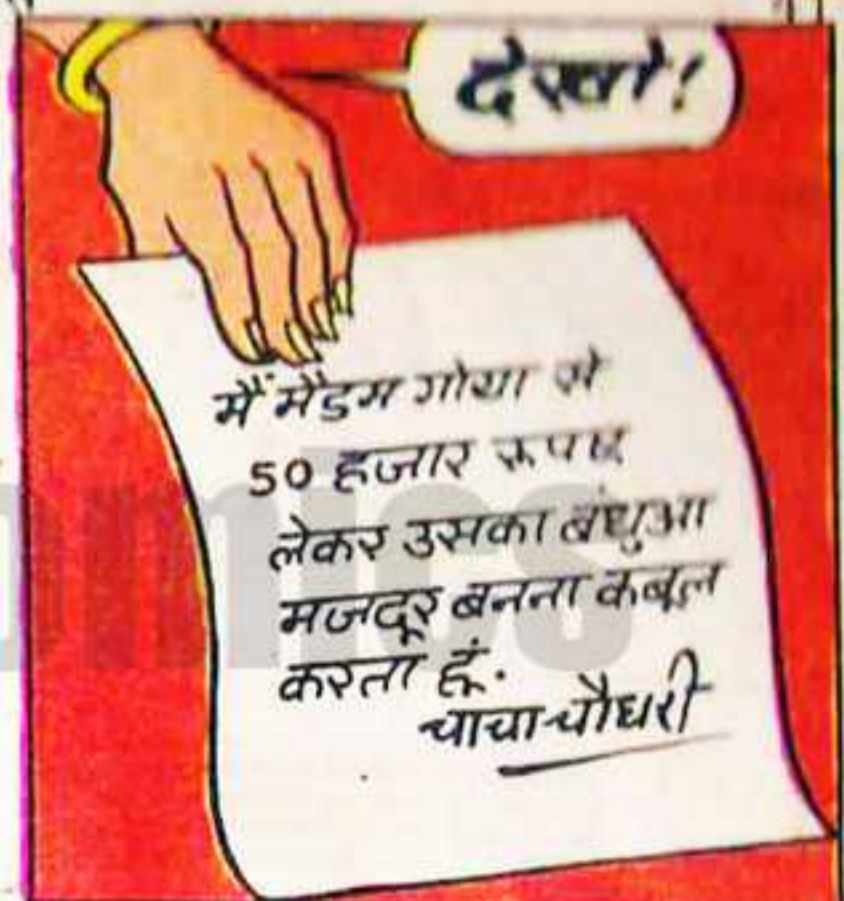 देखो!
मैं मैडम गोया से
50 हजार रूपए
लेकर उसका बंधुआ
मजदूर बनना कबूल
करता हूं.
चाचा चौधरी